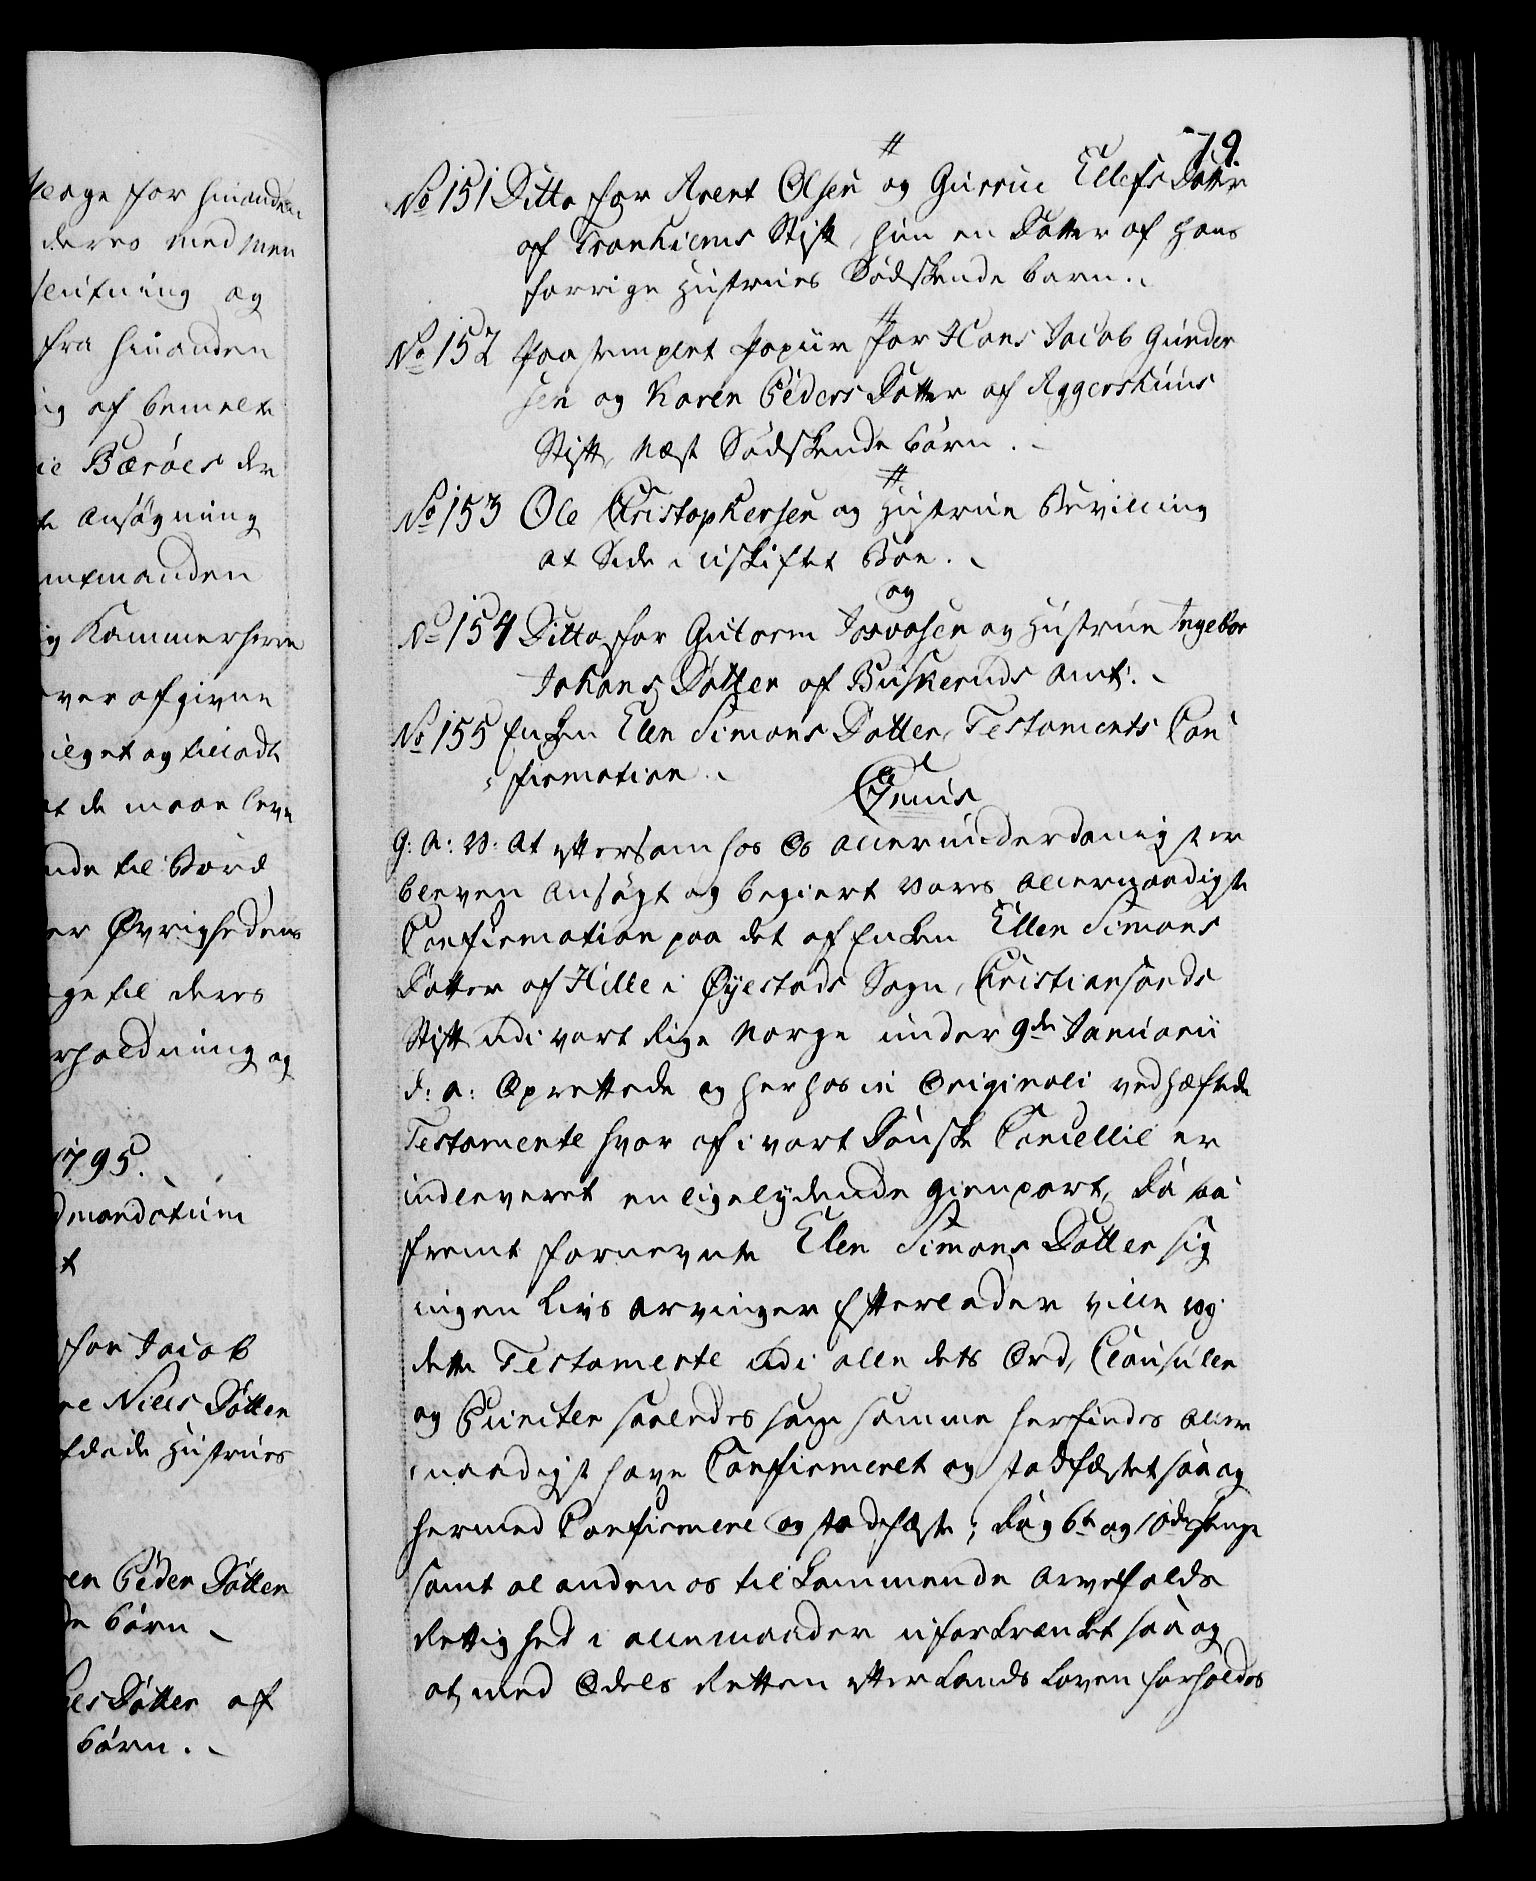 leage for hinanden
deres med men
senkning og
fra hinanden
ng af bemelte
ie Bærøes der
te Ansøgning
mtmanden
ig Kammerherre
over afgivne
vilget og tilladt
at de maae leve
nde til Bord
er Øvrighedens
ge til deres
rholdning og
1795.
dmandatum
t
for Jacob
ne Niels Datter
Hustrues
en Peders Datter
de børn
les Datter af
børn.
79.
#
No 151 Ditto for Arent Olsen og Gurrue Ellefs Datter
af Tronhiems Stift, hun en Datter af hans
forrige Hustrues Sødskende barn.
#
No 152 paa stemplet Papiir for Hans Jacob Gunder
sen og Karen Peders Datter af Aggershuus
Stift, Næst Sødskende børn.
#
No 153 Ole Christophersen og Hustrue Bevilling
at Side i uskiftet Boe.
og
No 154 Ditto for Gutorm Torvasen og Hustrue Ingebor
Johans Datter af Buskeruds Amt.
No 155 Enken Elen Simons Datter, Testaments Con
firmation.
Gratis
G: A: V: At eftersom hos Os allerunderdanigst er
bleven Ansøgt og begiert Vores Allernaadigste
Confirmation paa det af Enken Ellen Simons
Datter af Hille i Øyestads Sogn, Christiansands
Stift udi vort Rige Norge under 9de Januarii
d: A: Oprettede og herhos in Originali vedhæftede
Testamente hvor af i vort Danske Cancellie er
indleveret en ligelydende Gienpart, Da saa
fremt fornevnte Elen Simons Datter sig
ingen Livs Arvinger Efterlader ville Vog
dette Testamente udi alle dets Ord, Clausuler
og Puncter saaledes som samme herfindes Aller
naadigst have Confirmeret og stadfæstet saa og
hermed Confirmere og stadfæste; Dog 6te og 10de penge
samt al anden os tilkommende Arvefalds
Rettighed i allemaader uforkrænket saa og
at med Odels Retten efter Lands Loven forholdes